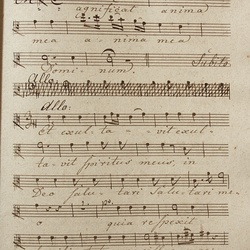 agnificat anima
mea anima mea
Domi_num. Subito
Allo:
Allo:
Et exul_ta_ vit exul_
ta_vit spiritus meus, in
Deo salu_tari salutari me_
o quia respexit